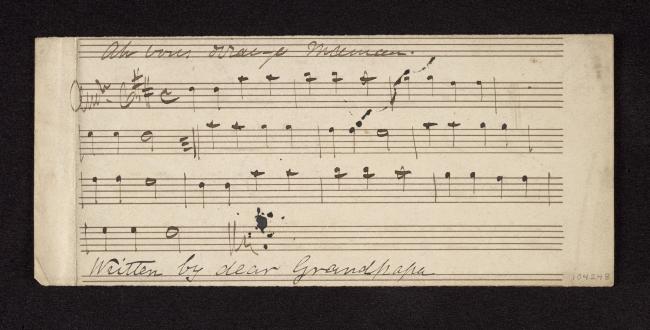 Ah vous dirai-je Maman.
Written by dear Grandpapa
104248